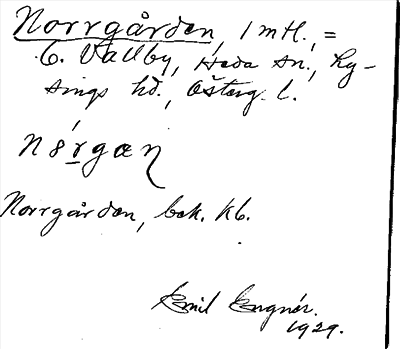 Norrgården, 1 mtl., =
C. Vallby, Heda sn., Ly-
sings hd., Österg. l.
Norrgården, bok. kb.
Emil Engnér.
1929.